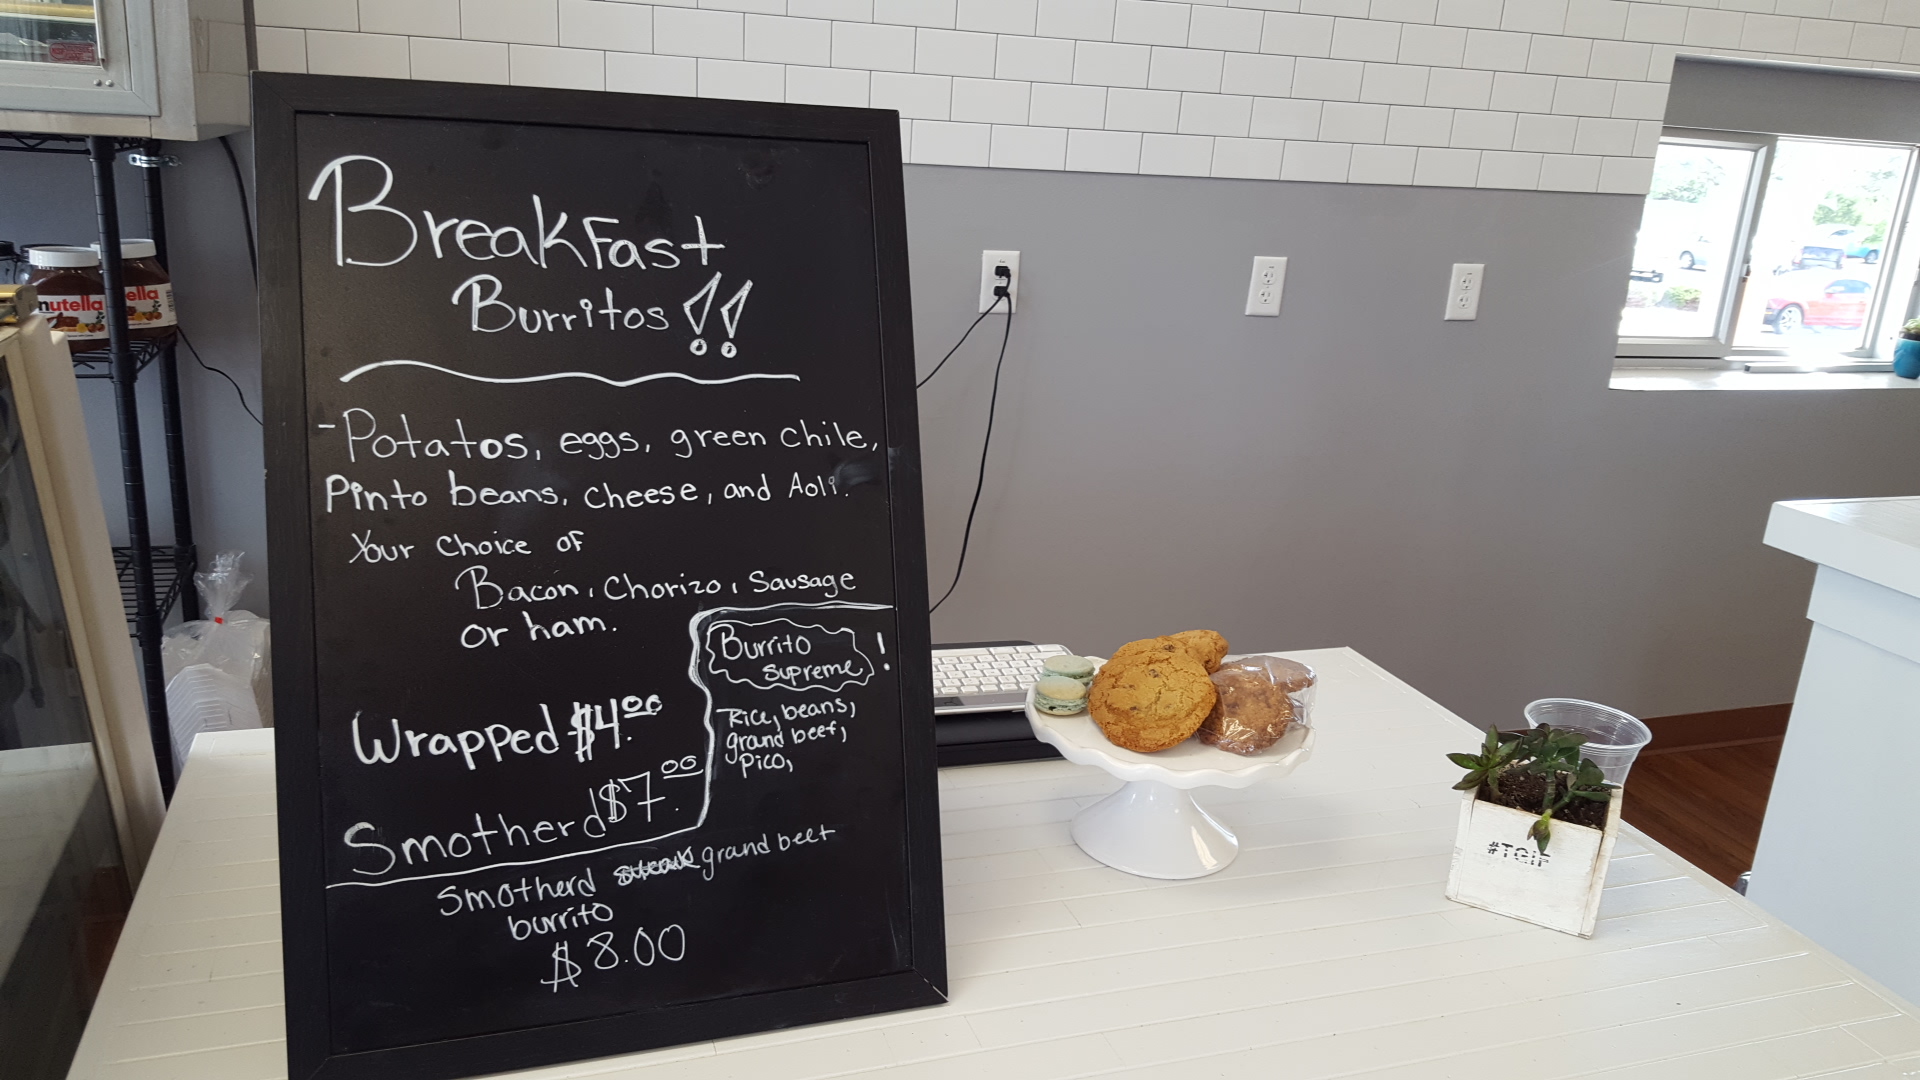 Breakfast
Burritos !!
-Potatos, eggs, green chile,
Pinto beans, cheese, and Aoli.
Your choice of
Bacon, Chorizo, Sausage
or ham.
Wrapped $4.00
Smotherd $7.00
Burrito
Supreme !
Rice, beans,
grand beef,
Pico,
Smotherd grand beef
burrito
$8.00
nutella
ella
#TGIF